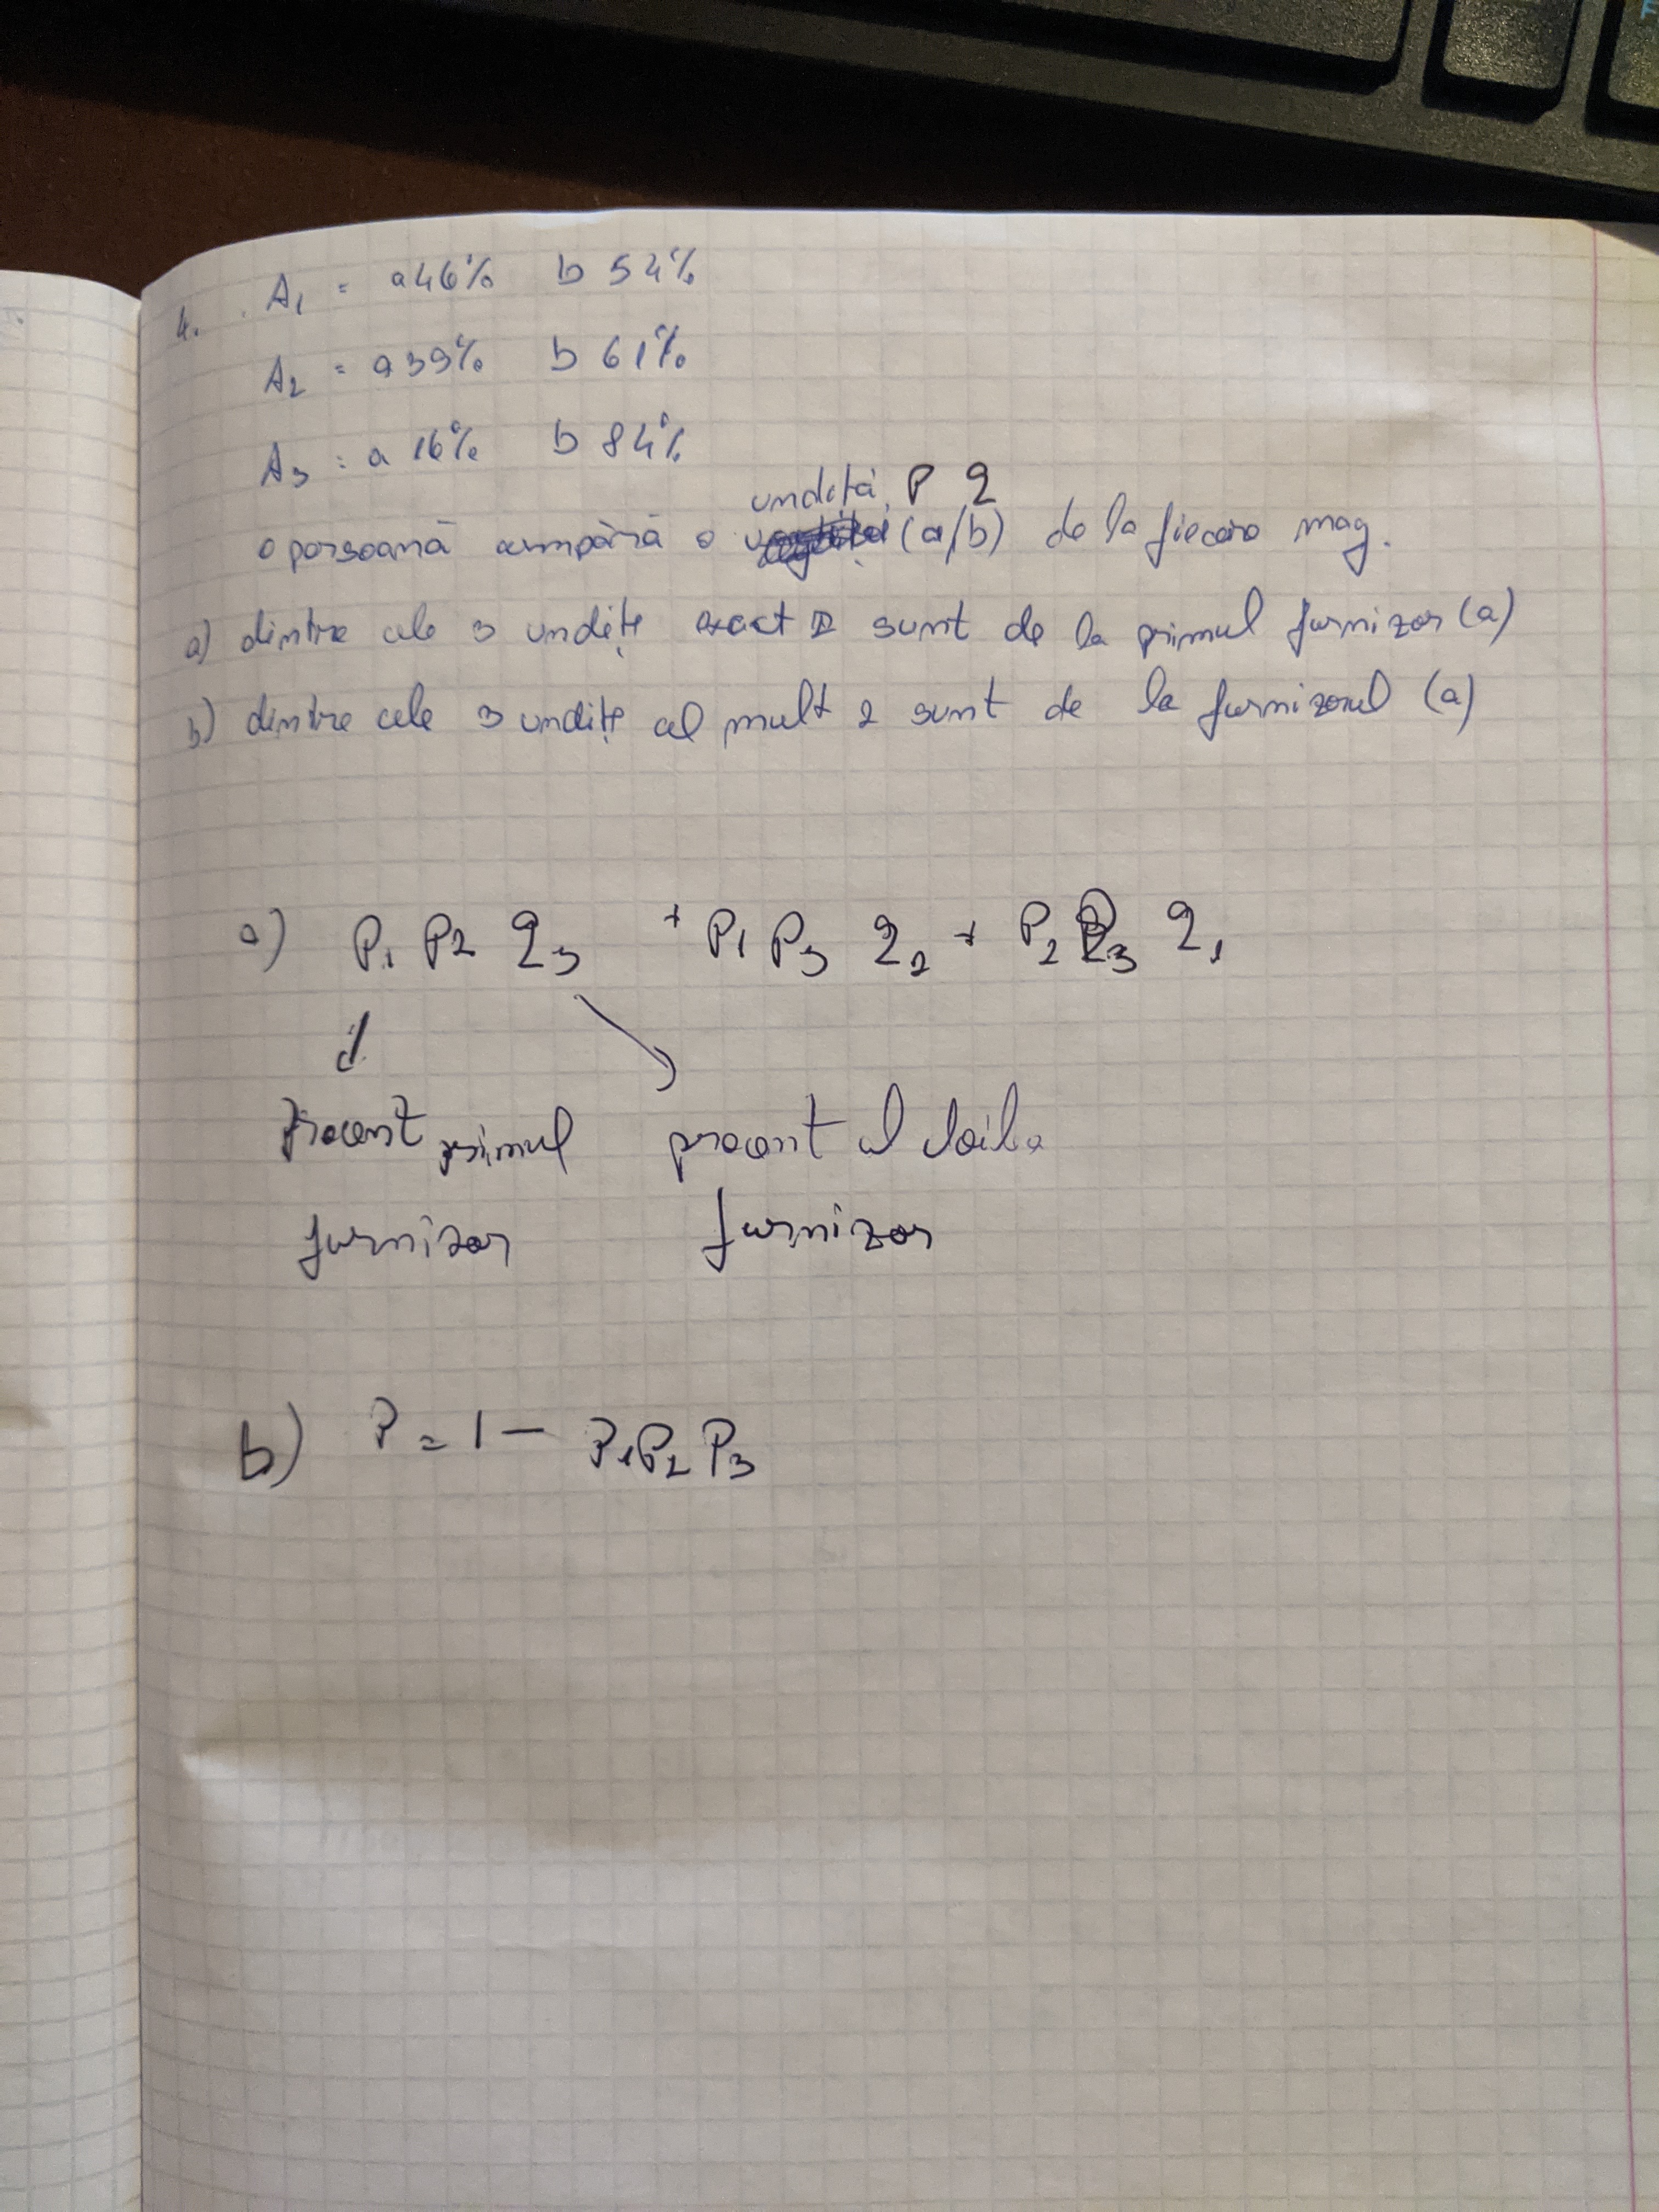 4. A1 = a 46% b 54%
A2 = a 39% b 61%
A3 = a 16% b 84%
undiță P q
o persoană cumpără o (a/b) de la fiecare mag.
a) dintre cele 3 undițe exact 2 sunt de la primul furnizor (a)
b) dintre cele 3 undițe cel mult 2 sunt de la furnizorul (a)
a) P1 P2 q3 + P1 P3 q2 + P2 P3 q1
procent primul procent al doilea
furnizor furnizor
b) P = 1 - P1P2P3